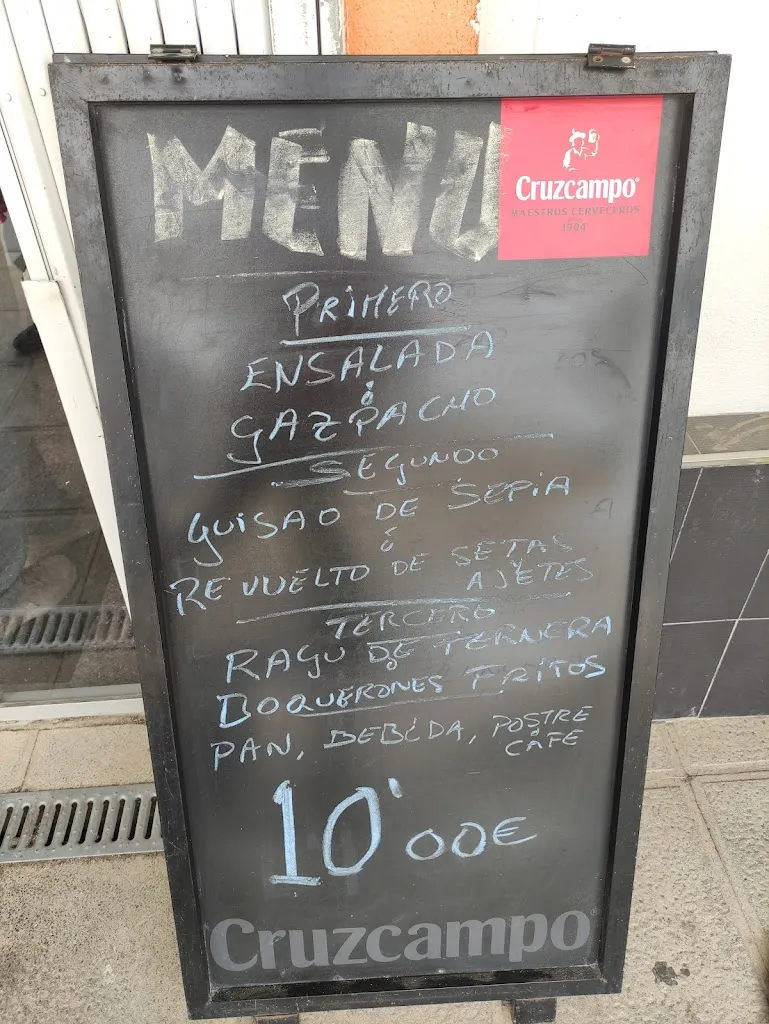 MENU
Cruzcampo®
MAESTROS CERVECEROS
1904
PRIMERO
ENSALADA
ó
GAZPACHO
SEGUNDO
GUISAO DE SEPIA
ó
REVUELTO DE SETAS
AJETES
TERCERO
RAGU DE TERNERA
ó
BOQUERONES FRITOS
PAN, BEBIDA, POSTRE
ó
CAFE
10'00€
Cruzcampo®